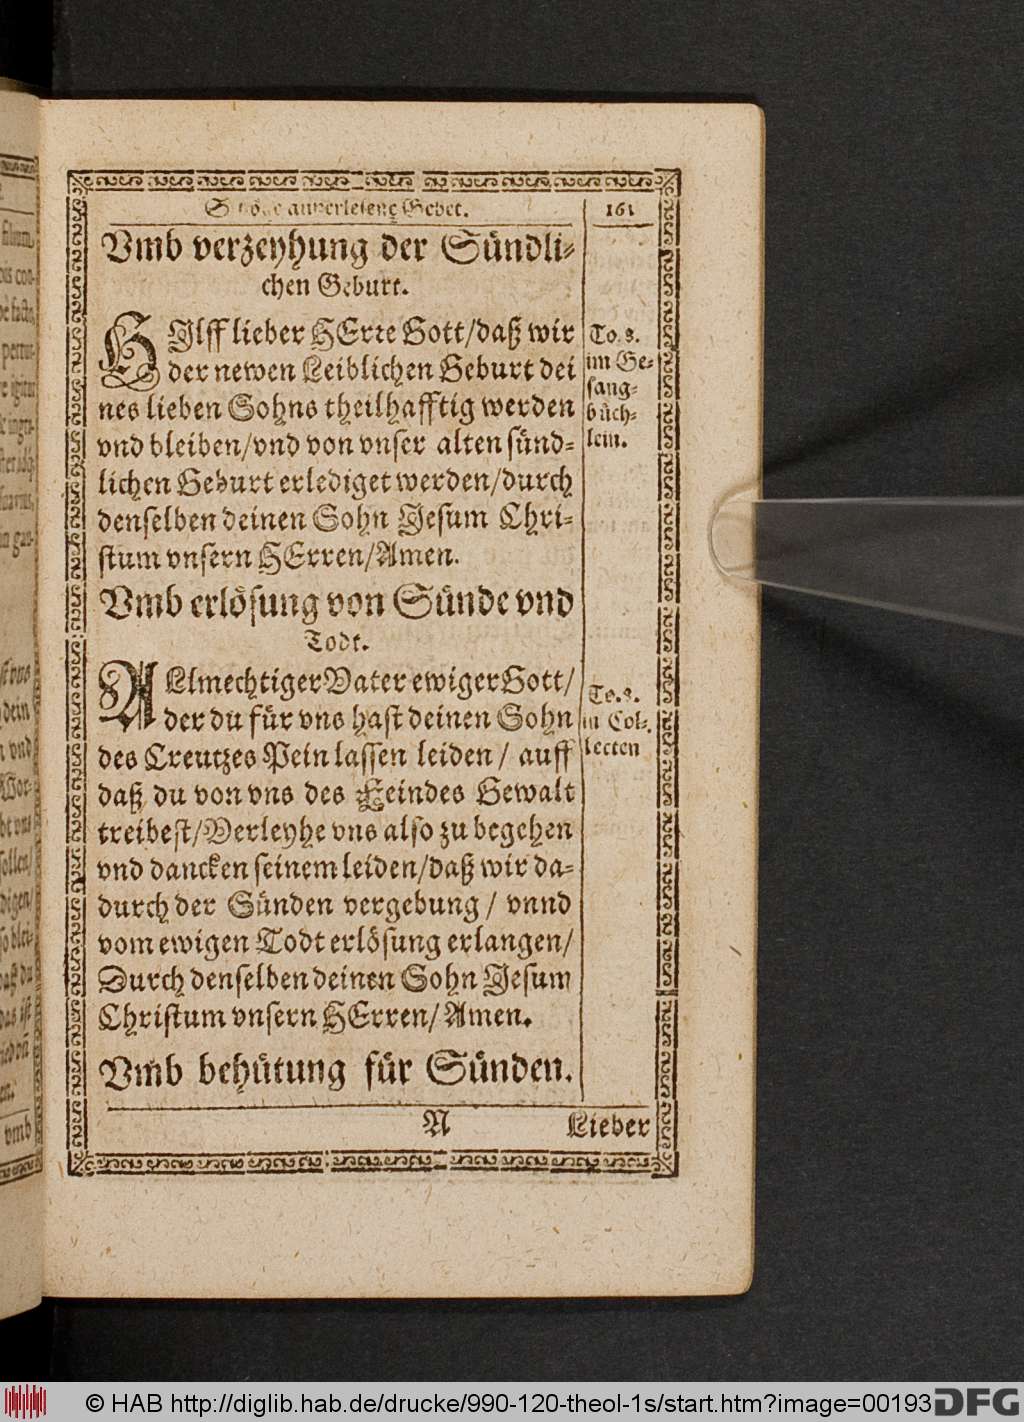 Schöne außerlesene Gebet. 161
Vmb verzeyhung der Sündli-
chen Geburt.
HIlff lieber HErre Gott/daß wir
der newen Leiblichen Geburt dei
nes lieben Sohns theilhafftig werden
vnd bleiben/vnd von vnser alten sünd-
lichen Geburt erlediget werden/durch
denselben deinen Sohn Jesum Chri-
stum vnsern HErren/Amen.
To. 8.
im Ge-
sang-
büch-
lein.
Vmb erlösung von Sünde vnd
Todt.
ALlmechtiger Vater ewiger Gott/
der du für vns hast deinen Sohn
des Creutzes Pein lassen leiden/ auff
daß du von vns des Feindes Gewalt
treibest/Verleyhe vns also zu begehen
vnd dancken seinem leiden/daß wir da-
durch der Sünden vergebung/ vnnd
vom ewigen Todt erlösung erlangen/
Durch denselben deinen Sohn Jesum
Christum vnsern HErren/ Amen.
To. 8.
in Col-
lecten
Vmb behütung für Sünden.
N Lieber
© HAB http://diglib.hab.de/drucke/990-120-theol-1s/start.htm?image=00193
DFG